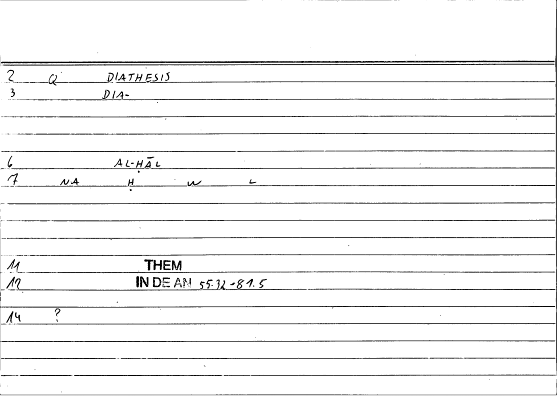 2 Q DIATHESIS
3 DIA-
6 AL-ḤĀL
7 NA Ḥ W L
11 THEM
12 IN DE AN 55.32-81.5
14 ?